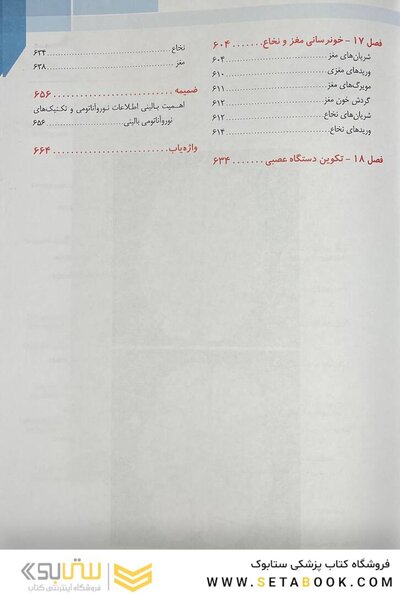 فصل ۱۷ - خونرسانی مغز و نخاع ....... ۶۰۴
شریان‌های مغز ........ ۶۰۴
وریدهای مغزی ........ ۶۱۰
مویرگ‌های مغز ........ ۶۱۱
گردش خون مغز ........ ۶۱۲
شریان‌های نخاع ........ ۶۱۲
وریدهای نخاع ........ ۶۱۴
فصل ۱۸ - تکوین دستگاه عصبی ....... ۶۳۴
نخاع ........ ۶۳۴
مغز ........ ۶۳۸
ضمیمه ........ ۶۵۶
اهمیت بالینی اطلاعات نوروآناتومی و تکنیک‌های
نوروآناتومی بالینی ........ ۶۵۶
واژه‌یاب ........ ۶۶۴
فروشگاه کتاب پزشکی ستابوک
WWW.SETABOOK.COM
ستابوک
فروشگاه اینترنتی کتاب